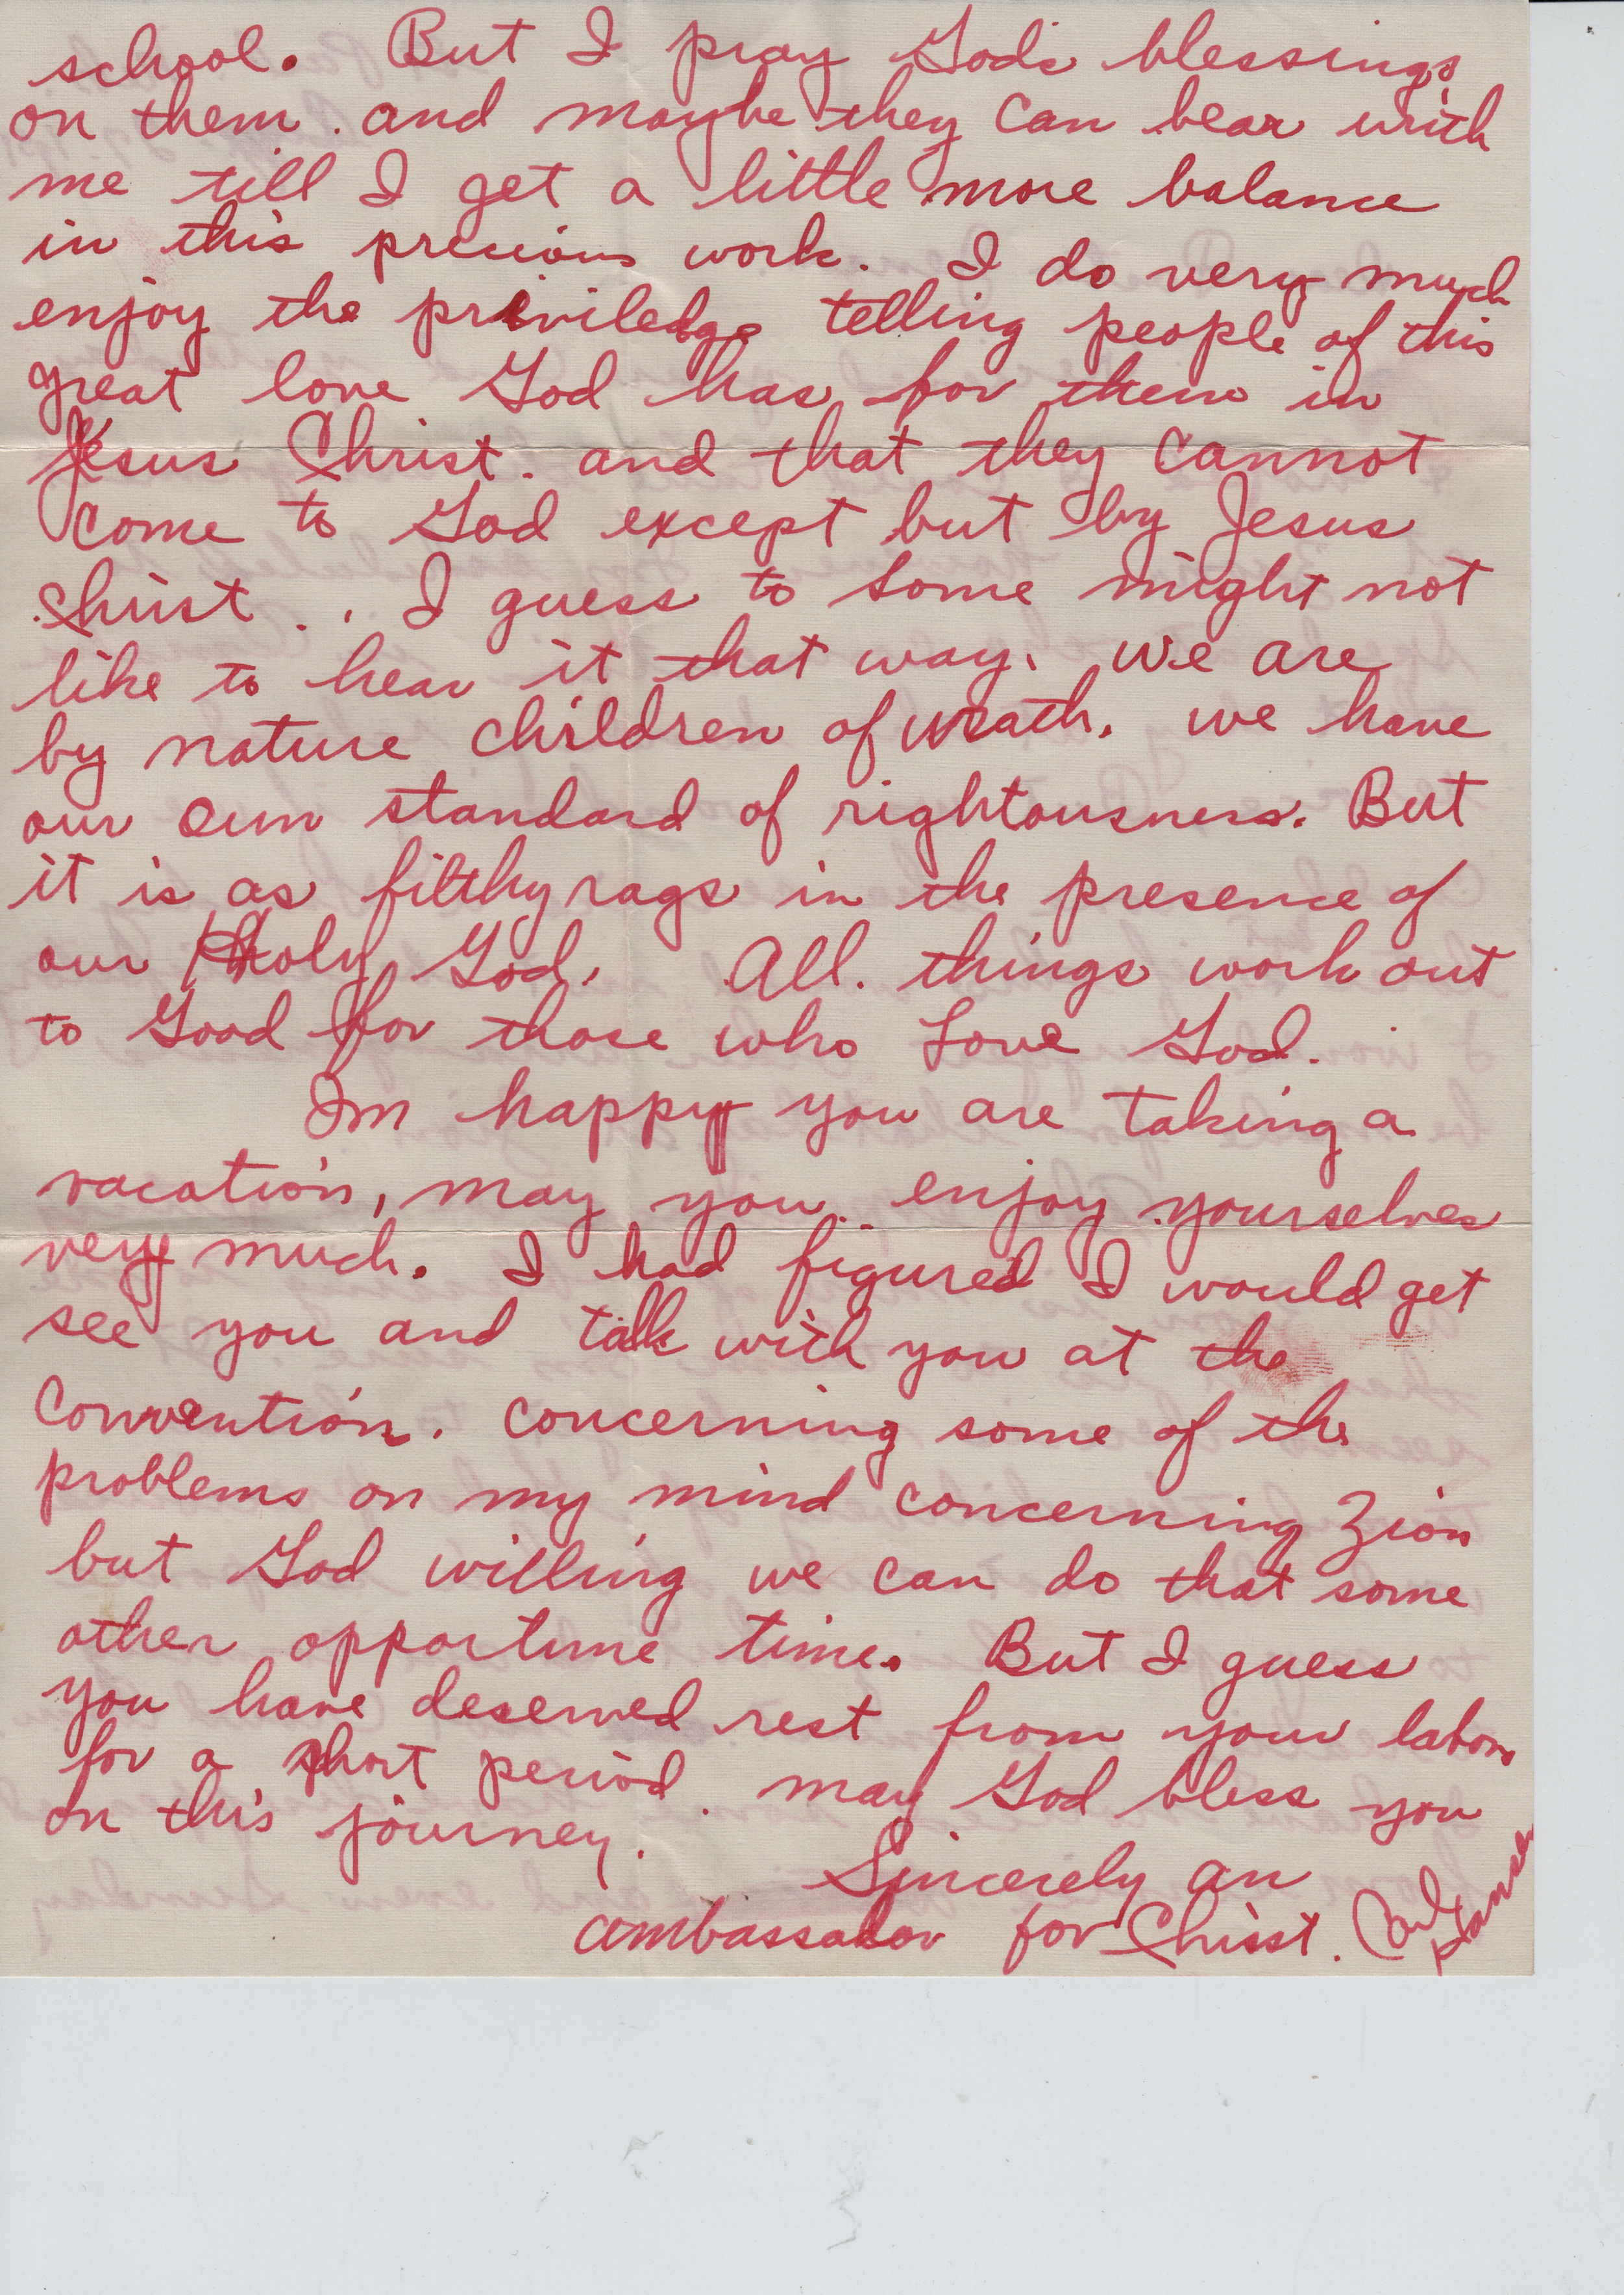 school. But I pray Gods blessings
on them. and maybe they can bear with
me till I get a little more balance
in this precious work. I do very much
enjoy the priviledge telling people of this
great love God has for them in
Jesus Christ. and that they cannot
come to God except but by Jesus
Christ.. I guess to some might not
like to hear it that way. we are
by nature children of wrath. we have
our own standard of rightousness. But
it is as filthy rags in the presence of
our Holy God. All. things work out
to Good for those who Love God.
Im happy you are taking a
vacation, may you enjoy yourselves
very much. I had figured I would get
see you and talk with you at the
Convention. concerning some of the
problems on my mind concerning Zion
but God willing we can do that some
other opportune time. But I guess
you have deserved rest from your labors
for a short period. may God bless you
on this journey.
Sincerely an
ambassador for Christ.